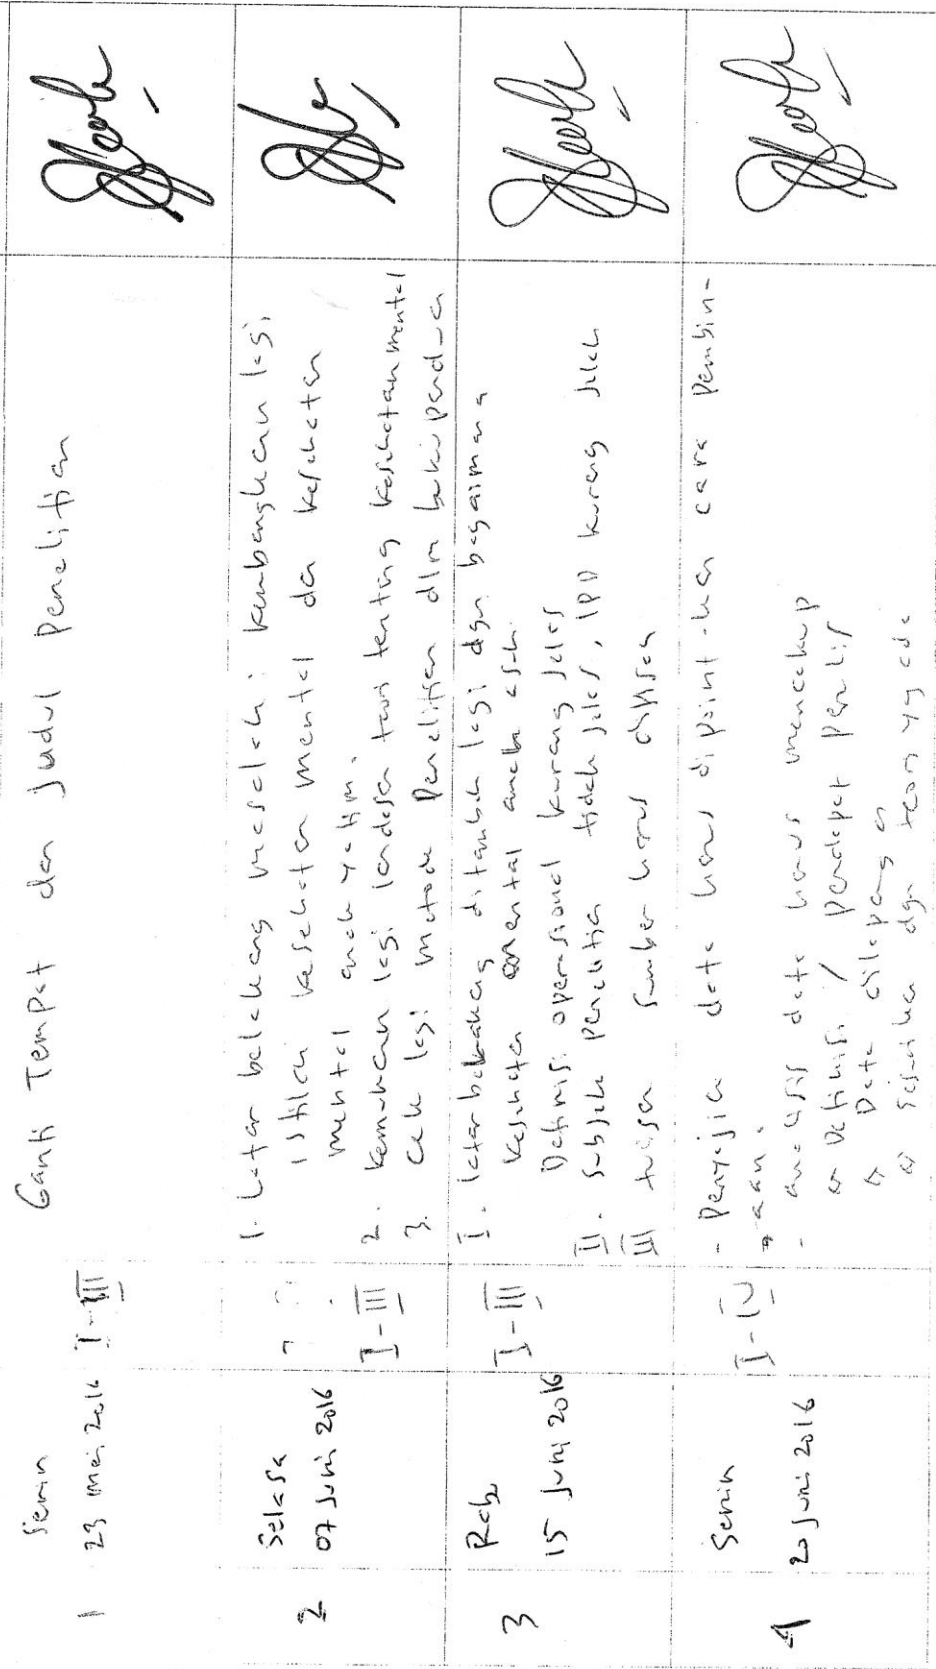 1
Senin
23 mei 2016
I-III
Ganti Tempat dan Judul Penelitian
2
Selasa
07 Juni 2016
I-III
1. Latar belakang masalah: kembangkan lagi
istilah kesehatan mental dan kesehatan
mental anak yatim.
2. kemukakan lagi landasan teori tentang kesehatan mental
3. Cek lagi metode Penelitian dlm buku panduan
3
Rabu
15 Juni 2016
I-III
I. latar belakang ditambah lagi dgn bagaimana
kesehatan mental anak asuh.
Definisi operasional kurang jelas
II. Subjek penelitian tidak jelas, IPD kurang
III tulisan sumber harus
4
Senin
20 Juni 2016
I-IV
- Penyajian data harus dipoint-kan cara Pembin-
aan.
- analisis data harus mencakup
Definisi / Pendapat Penulis
Data dilapangan
sesuaikan dgn teori yg ada